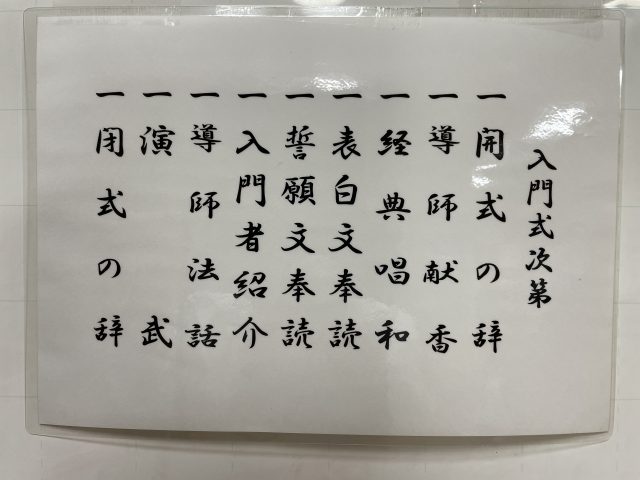 入門式次第
一開式の辞
一導師献香
一経典唱和
一表白文奉読
一誓願文奉読
一入門者紹介
一導師法話
一演武
一閉式の辞